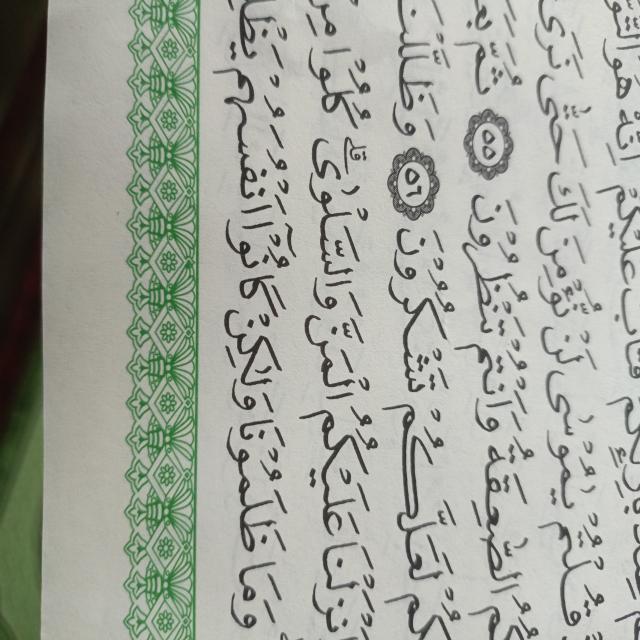 فَتَابَ عَلَيْكُمْ اِنَّهٗ هُوَ
قُلْتُمْ يٰمُوْسٰى لَنْ نُّؤْمِنَ لَكَ حَتّٰى نَرَى
الصّٰعِقَةُ وَاَنْتُمْ تَنْظُرُوْنَ ٥٥ ثُمَّ
لَعَلَّكُمْ تَشْكُرُوْنَ ٥٦ وَظَلَّلْنَا
عَلَيْكُمُ الْمَنَّ وَالسَّلْوٰى ۗ كُلُوْا مِنْ
وَمَا ظَلَمُوْنَا وَلٰكِنْ كَانُوْٓا اَنْفُسَهُمْ